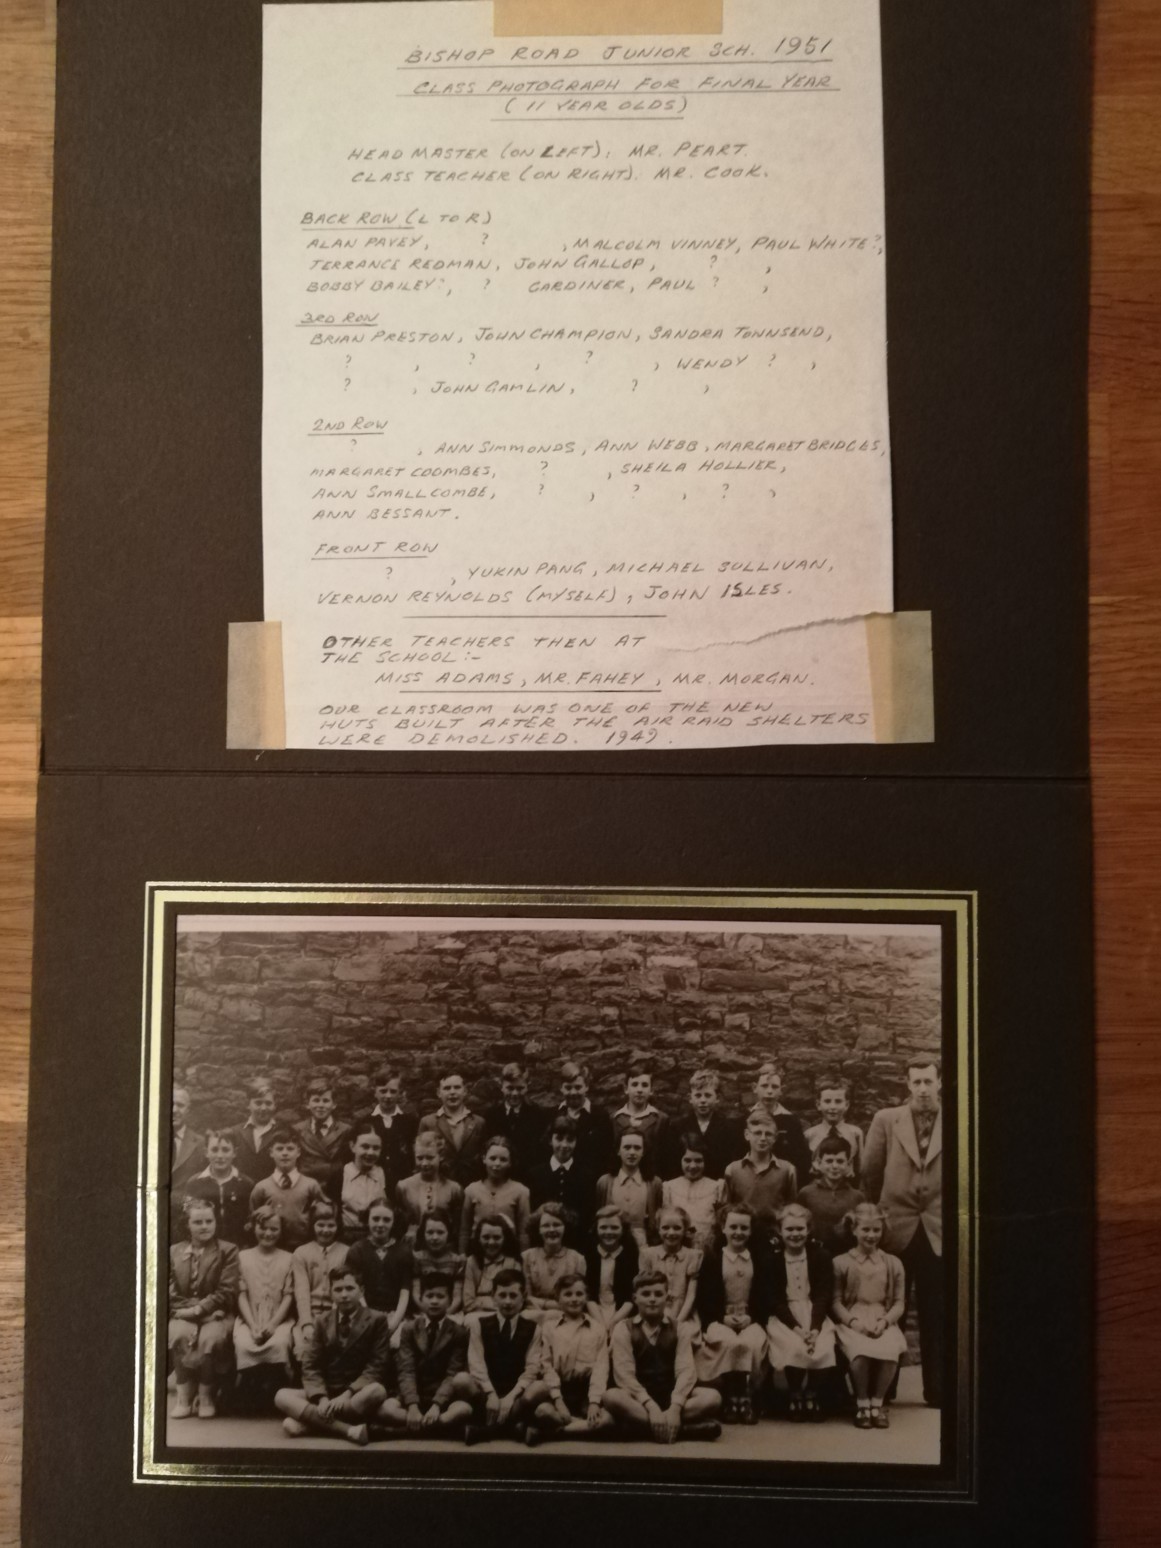 BISHOP ROAD JUNIOR SCH. 1951
CLASS PHOTOGRAPH FOR FINAL YEAR
(11 YEAR OLDS)
HEAD MASTER (ON LEFT): MR. PEART.
CLASS TEACHER (ON RIGHT). MR. COOK.
BACK ROW (L TO R)
ALAN PAVEY, ? , MALCOLM VINNEY, PAUL WHITE?,
TERRANCE REDMAN, JOHN GALLOP, ? ,
BOBBY BAILEY?, ? GARDINER, PAUL ? ,
3RD ROW
BRIAN PRESTON, JOHN CHAMPION, SANDRA TOWNSEND,
? , ? , ? , WENDY ? ,
? , JOHN GAMLIN, ? ,
2ND ROW
? , ANN SIMMONDS, ANN WEBB, MARGARET BRIDGES,
MARGARET COOMBES, ? , SHEILA HOLLIER,
ANN SMALLCOMBE, ? , ? , ? ,
ANN BESSANT.
FRONT ROW
? , YUKIN PANG, MICHAEL SULLIVAN,
VERNON REYNOLDS (MYSELF), JOHN ISLES.
OTHER TEACHERS THEN AT
THE SCHOOL:-
MISS ADAMS, MR. FAHEY, MR. MORGAN.
OUR CLASSROOM WAS ONE OF THE NEW
HUTS BUILT AFTER THE AIR RAID SHELTERS
WERE DEMOLISHED. 1949.